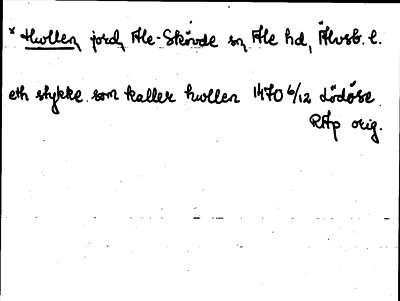 * Hwllen, jord, Ale-Skövde sn, Ale hd, Älvsb. l.
eth stykke som kaller hwllen 1470 6/12 Lödöse
RAp orig.